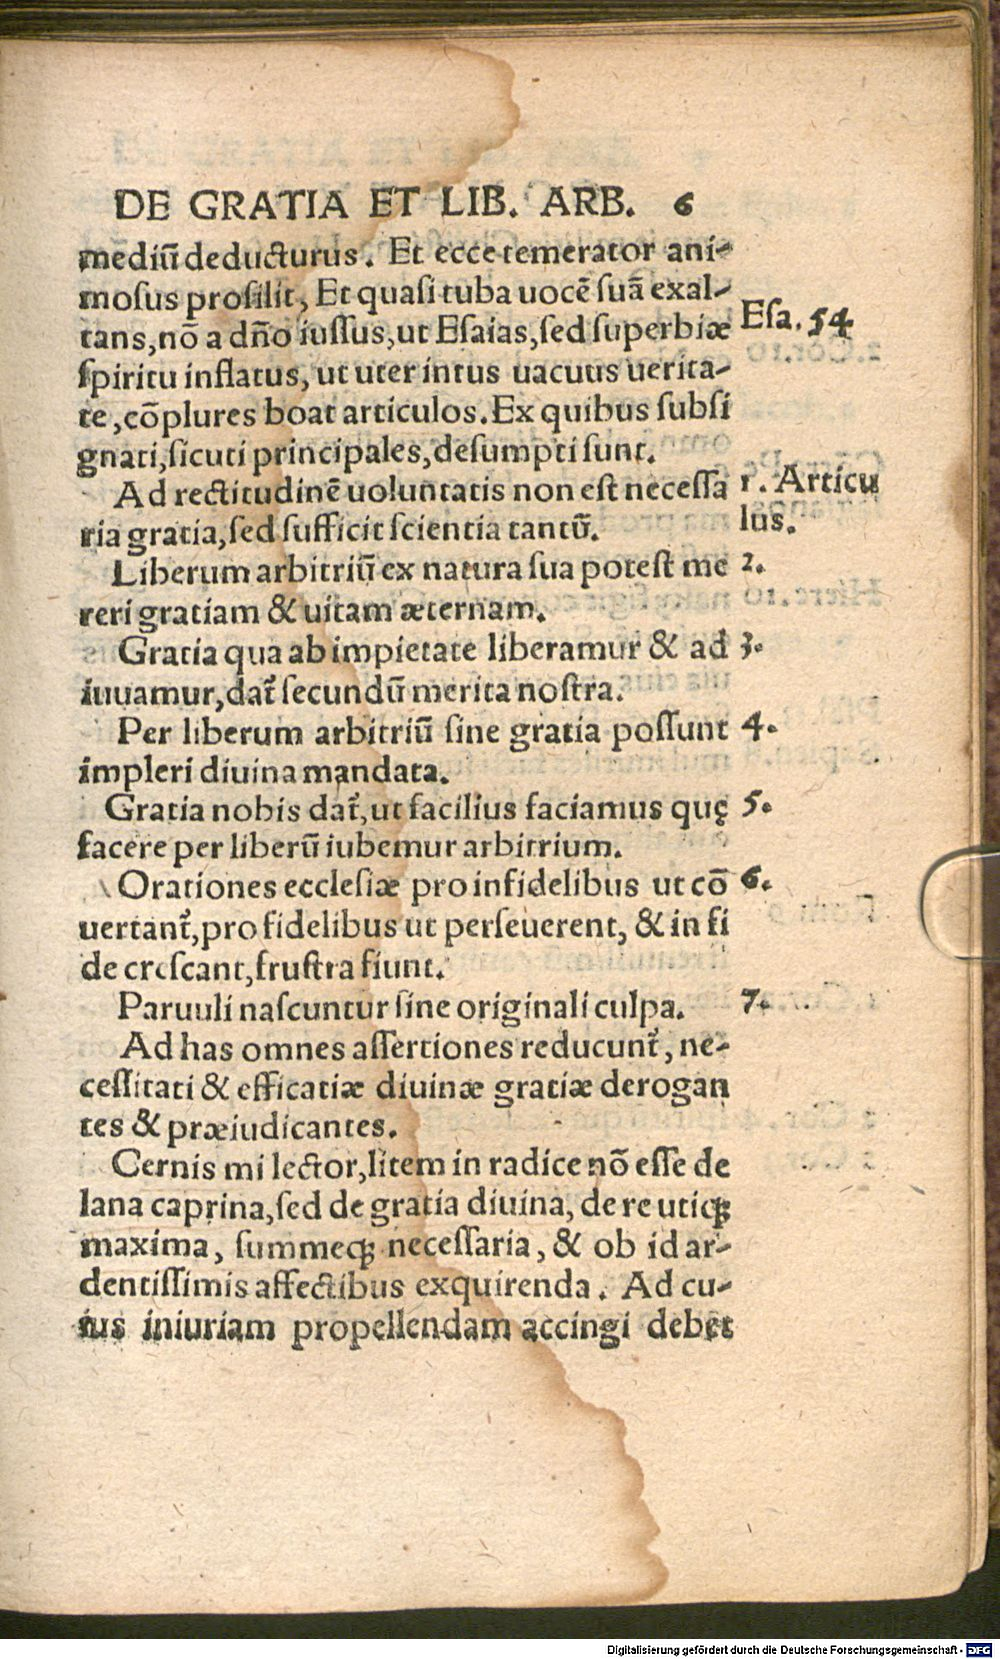 DE GRATIA ET LIB. ARB. 6
mediũ deducturus. Et ecce temerator ani-
mosus prosilit, Et quasi tuba uocẽ suã exal-
tans, nõ a dño iussus, ut Esaias, sed superbiæ
Esa. 54
spiritu inflatus, ut uter intus uacuus uerita-
te, cõplures boat articulos. Ex quibus subsi
gnati, sicuti principales, desumpti sunt.
Ad rectitudinẽ uoluntatis non est necessa
1. Articu
ria gratia, sed sufficit scientia tantũ.
lus.
Liberum arbitriũ ex natura sua potest me
2.
reri gratiam & uitam æternam.
Gratia qua ab impietate liberamur & ad
3.
iuuamur, dat᷑ secundũ merita nostra.
Per liberum arbitriũ sine gratia possunt
4.
impleri diuina mandata.
Gratia nobis dat᷑, ut facilius faciamus quę
5.
facere per liberũ iubemur arbitrium.
Orationes ecclesiæ pro infidelibus ut cõ
6.
uertant᷑, pro fidelibus ut perseuerent, & in fi
de crescant, frustra fiunt.
Paruuli nascuntur sine originali culpa.
7.
Ad has omnes assertiones reducunt᷑, ne-
cessitati & efficatiæ diuinæ gratiæ derogan
tes & præiudicantes.
Cernis mi lector, litem in radice nõ esse de
lana caprina, sed de gratia diuina, de re utiqꝫ
maxima, summeqꝫ necessaria, & ob id ar-
dentissimis affectibus exquirenda. Ad cu-
ius iniuriam propellendam accingi debet
Digitalisierung gefördert durch die Deutsche Forschungsgemeinschaft - DFG